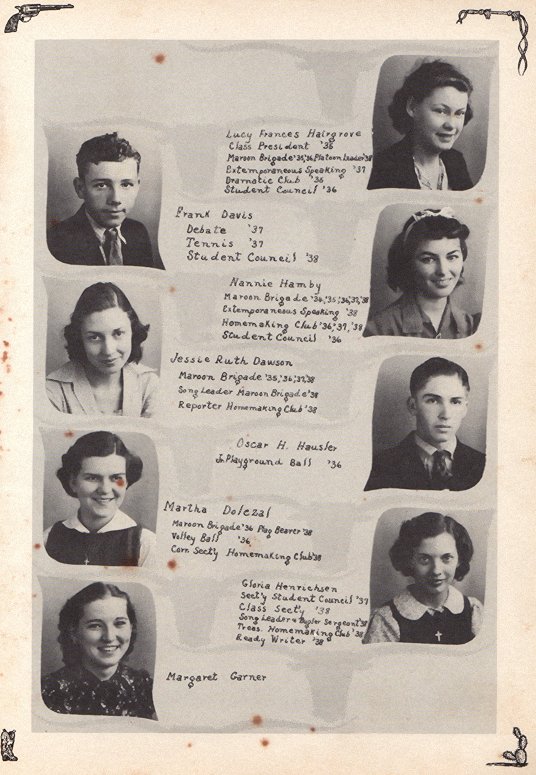 Lucy Frances Hairgrove
Class President '36
Maroon Brigade '35,'36, Platoon Leader '38
Extemporaneous Speaking '37
Dramatic Club '36
Student Council '36
Frank Davis
Debate '37
Tennis '37
Student Council '38
Nannie Hamby
Maroon Brigade '34,'35,'36,'37,'38
Extemporaneous Speaking '38
Homemaking Club '36,'37,'38
Student Council '36
Jessie Ruth Dawson
Maroon Brigade '35,'36,'37,'38
Song Leader Maroon Brigade '38
Reporter Homemaking Club '38
Oscar H. Hausler
Jr. Playground Ball '36
Martha Dolezal
Maroon Brigade '36 Flag Bearer '38
Volley Ball '36
Corr Sect'y Homemaking Club '38
Gloria Henrichsen
Sect'y Student Council '37
Class Sect'y '38
Song Leader & Bugler Sergeant '38
Treas. Homemaking Club '38
Ready Writer '38
Margaret Garner